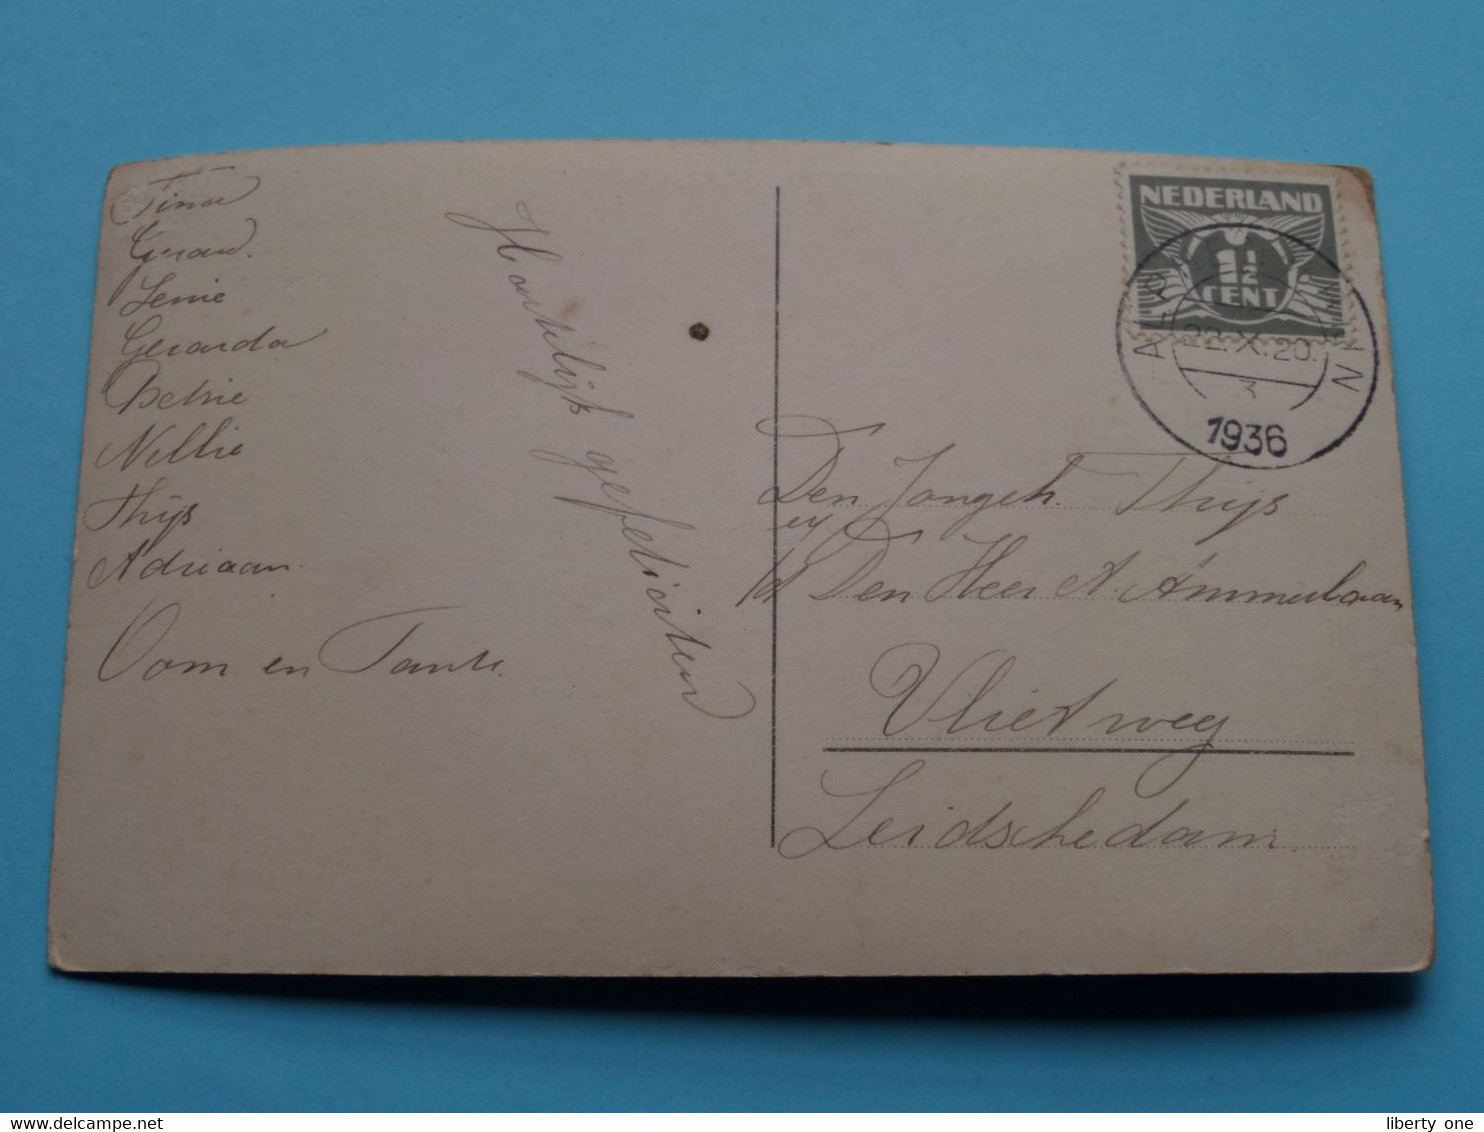 Tina
Gerard.
Lenie
Gerarda
Betsie
Nellie
Thijs
Adriaan.
Oom en Tante.
Hartelijk gefeliciteerd
NEDERLAND
1½
CENT
22.X.20.
3
1936
Den Jongeh. Thijs
Den Heer A. Ammerlaan
Vlietweg
Leidschedam.
www.delcampe.net
liberty one